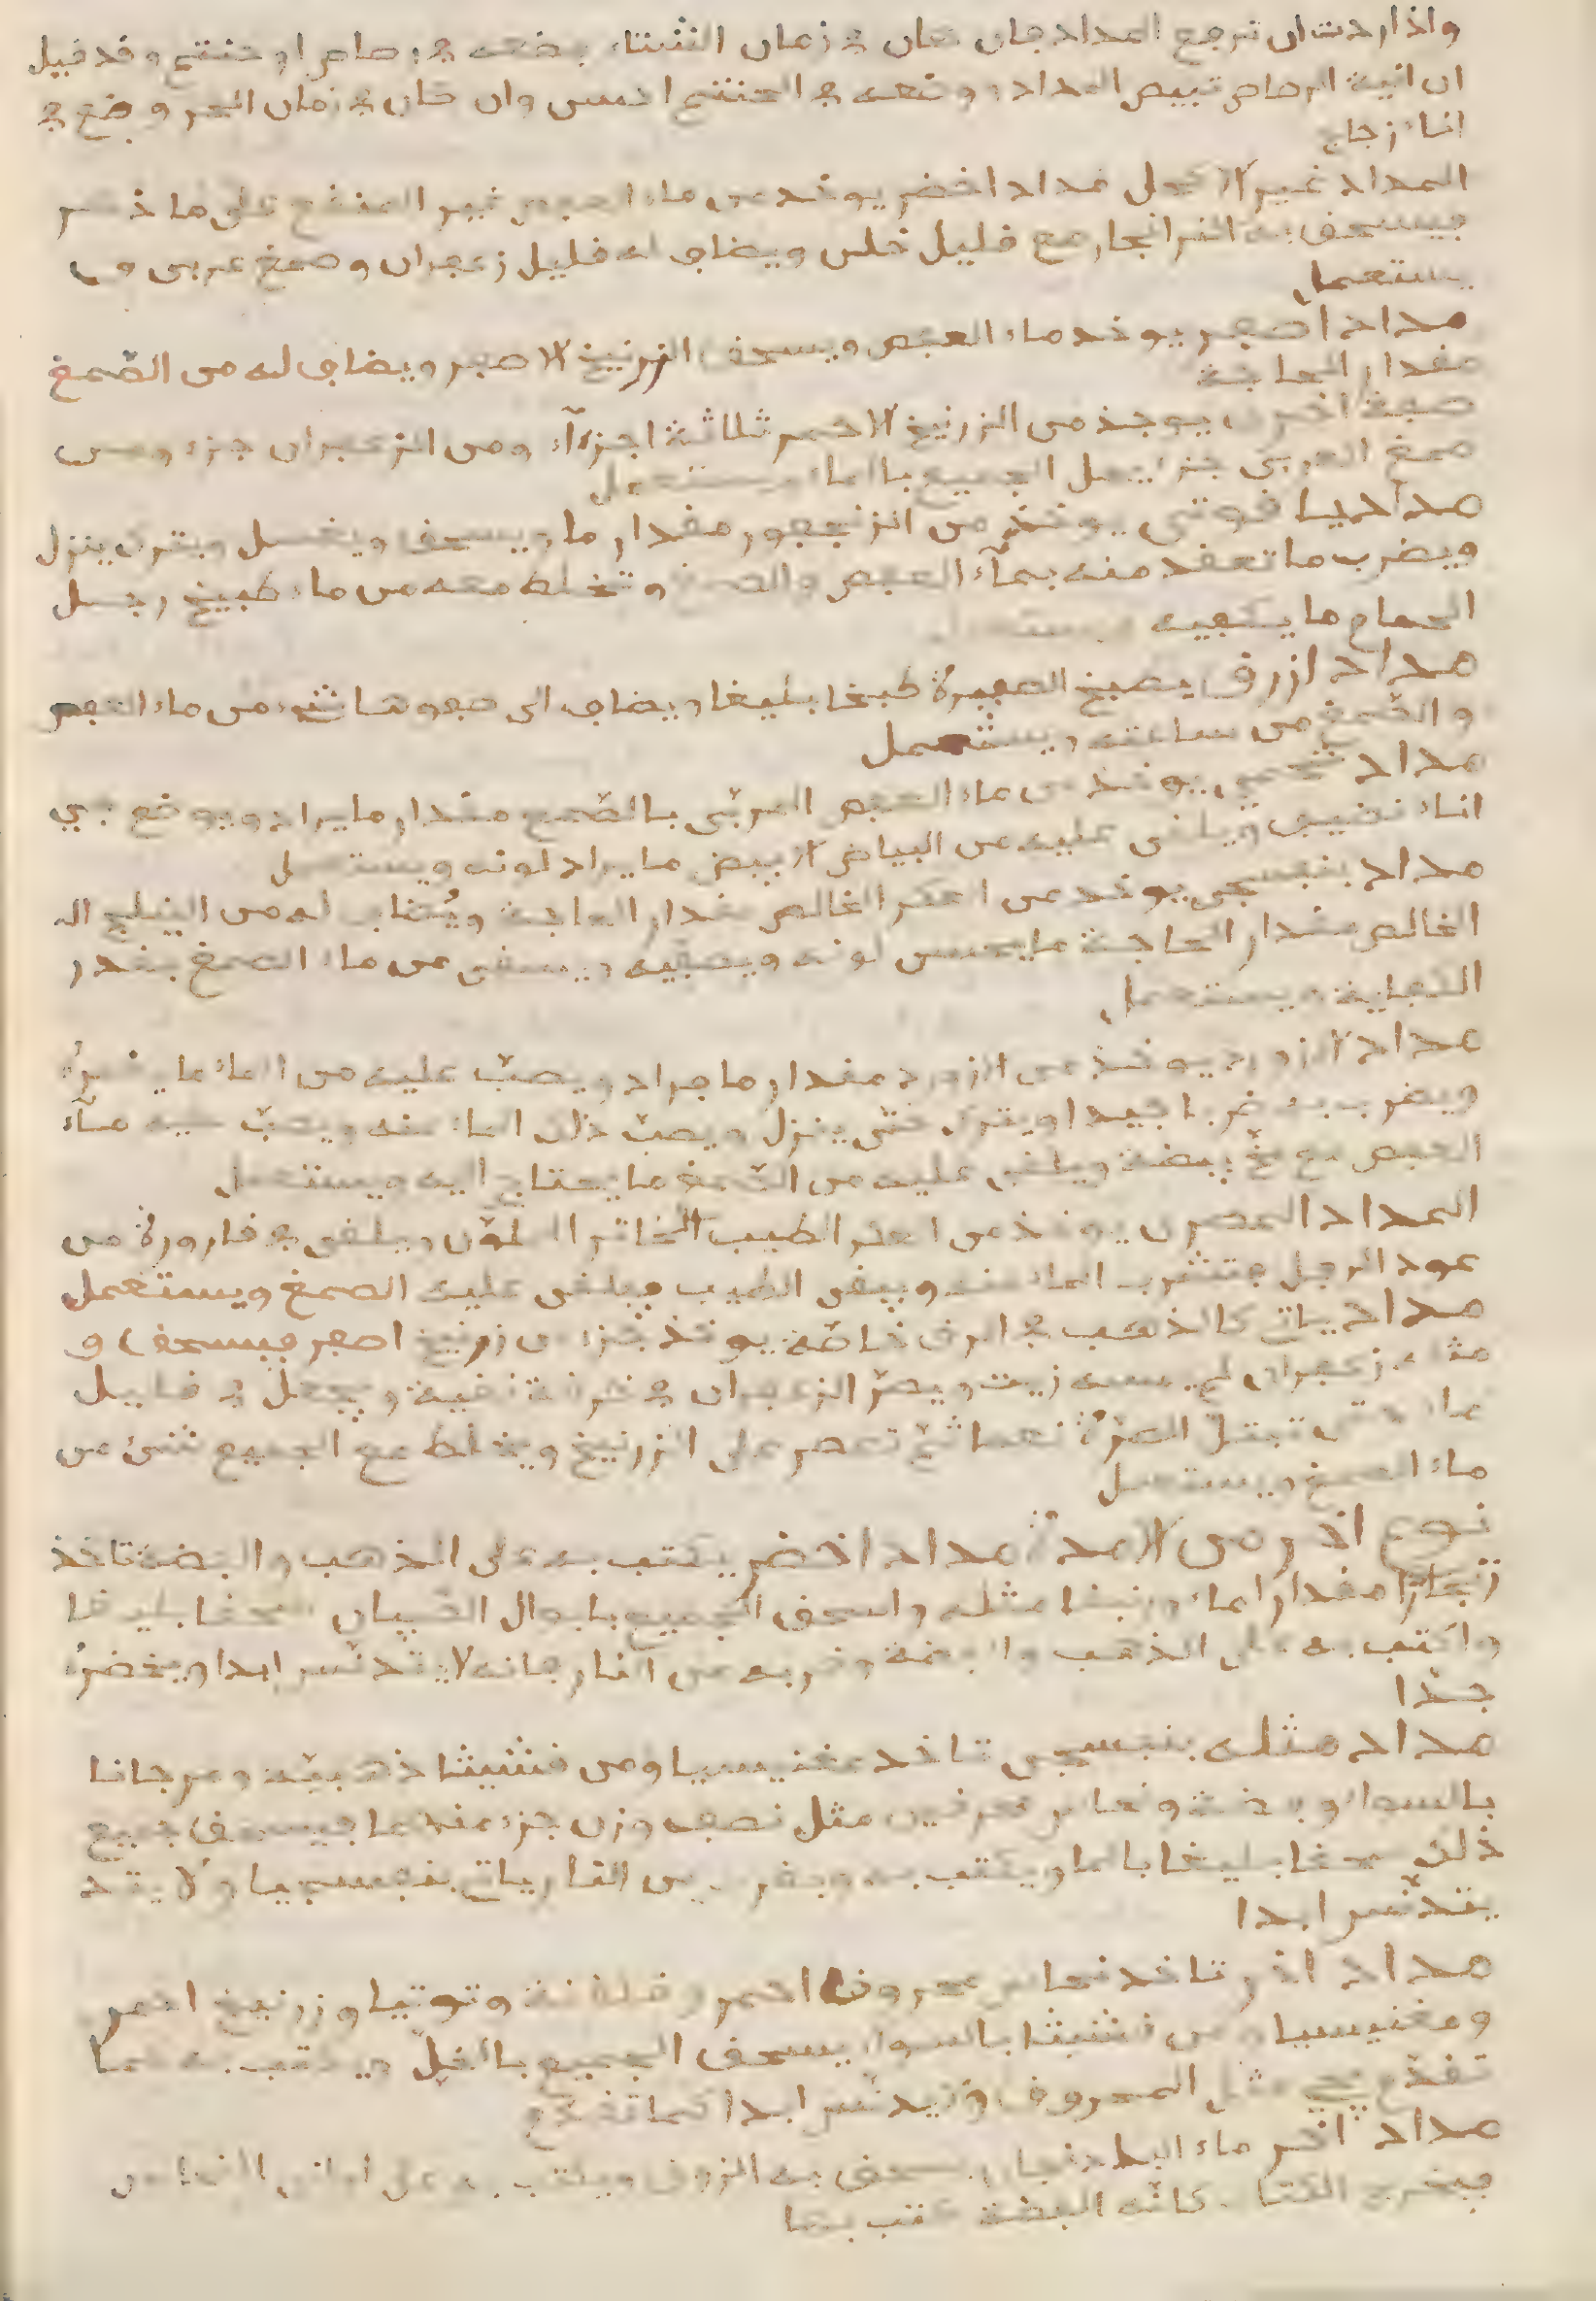 واذا اردت ان ترجع المداد فان كان في زمان الشتاء فضعه في رصاص او حنتم وقد قيل
ان انية الرصاص تبيض المداد ووضعه في الحنتم احسن وان كان في زمان الحر وضع في
اناء زجاج
المداد غير الاكحل مداد اخضر يوخذ من ماء العفص غير المنقع على ما ذكر
فيسحق به الزنجار مع قليل خل ويضاف له قليل زعفران وصمغ عربي و
يستعمل
مداد اصفر يوخذ ماء العفص ويسحق الزرنيخ الاصفر ويضاف له من الصّمغ
مقدار الحاجة
صبغة اخرى يوخذ من الزرنيخ الاحمر ثلاثة اجزآء ومن الزعفران جزء ومن
صمغ العربي جزء يحل الجميع بالماء ويستعمل
مداد ياقوتي يوخذ من الزنجفور مقدار ما ويسحق ويغسل ويترك ينزل
ويضرب ما تعقد منه بمآء العفص والصمغ وتخلط معه من ماء طبيخ رجل
الحمام ما يكفيه ويستعمل
مداد ازرق يطبخ العفيرة طبخا بليغا ويضاف الى صفوها شيء من ماء العفص
والصّمغ من ساعته ويستعمل
مداد يوخذ من ماء العفص المربّى بالصّمغ مقدار ما يراد ويوضع في
اناء نضيف ويلقى عليه من البياض الابيض ما يراد لونه ويستعمل
مداد بنفسجي يوخذ من العكر الخالص مقدار الحاجة ويُضاف له من النيلج الـ
الخالص مقدار الحاجة ما يحسن لونه ويصفيه ويسقى من ماء الصمغ بقدر
الكفاية ويستعمل
مداد لازورد يوخذ من لازورد مقدار ما يراد ويصبّ عليه من الماء ما يغمره
ويضرب به ضربا جيدا ويترك حتى ينزل ويصبّ ذلك الماء عنه ويصبّ عليه مآء
العفص مع مخّ بيضة ويلقى عليه من الصّمغ ما يحتاج اليه ويستعمل
المداد يوخذ من العكر الطيب الخاثر اللون ويلقى في قارورة من
عود الرجل فتشرب الماء منه ويبقى الطيب فيلقى عليه الصمغ ويستعمل
مداد ياتي كالذهب في الرق خاصّة يوخذ جزء من زرنيخ اصفر فيسحق و
مثله زعفران لم يمسه زيت ويصرّ الزعفران في خرقة نقية ويجعل في قليل
ماء حتى تبتلّ الصرّة نعما ثمّ تعصر على الزرنيخ ويخلط مع الجميع شيء من
ماء الصمغ ويستعمل
نوع اخر من الامدة مداد اخضر يكتب به على الذهب والفضة تاخذ
زنجارا مقدارا ما وزرنيخا مثله واسحق الجميع بابوال الصّبيان سحقا بليغا
واكتب به على الذهب والفضة وقربه من النار فانه لا يتدنّس ابدا ويخضرُّ
جدّا
مداد مثله بنفسجي تاخذ مغنيسيا ومرقشيثا ذهبيّة ومرجانا
بالسواء وفضة ونحاس محرقين مثل نصف وزن جزء منهما فيسحق جميع
ذلك سحقا بليغا بالماء ويكتب به ويقرب من النار ياتي بنفسجيا ولا يتد
يتدنّس ابدا
مداد اخر تاخذ نحاس محروق احمر وقلقنة وتوتيا وزرنيخ احمر
ومغنيسيا ومرقشيثا بالسواء يسحق الجميع بالخلّ ويكتب به كما
تقدّم يجيء مثل المحروق ولا يدنّس ابدا كما تقدّم
مداد اخر ماء الباذنجان يسحق به الزوق ويكتب به على اواني النحاس
فيخرج الكتاب كانّه الفضة كتب بها